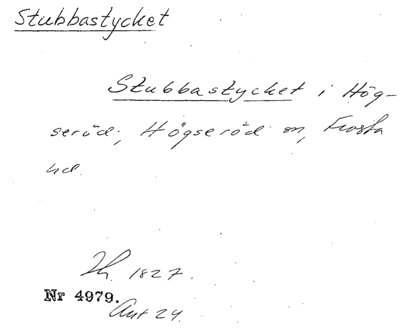 Stubbastycket
Stubbastycket i Hög-
seröd; Högseröd sn, Frosta
hd.
1827.
Nr 4979.
Ant 24.